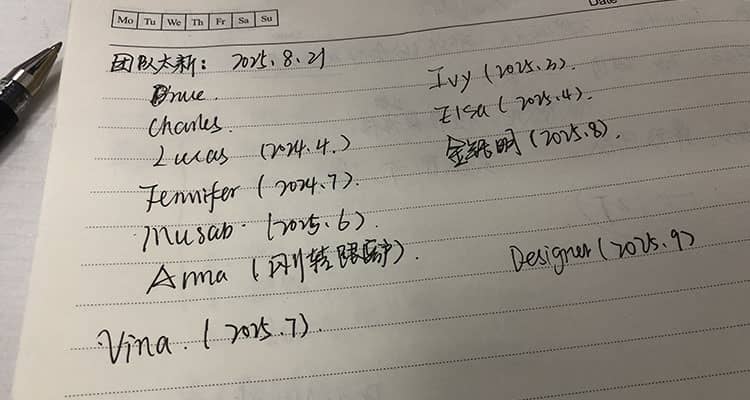 Mo Tu We Th Fr Sa Su
Date
团队大新: 2025.8.21
Bruce.
Charles.
Lucas (2024.4.)
Jennifer (2024.7).
Musab. (2025.6).
Anna (刚转跟客户).
Vina. (2025.7).
Ivy (2025.2).
Elsa (2025.4).
金明 (2025.8).
Designer (2025.9)